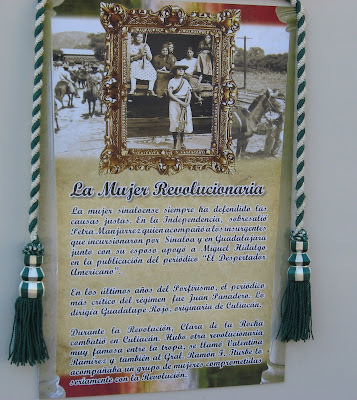 La Mujer Revolucionaria
La mujer sinaloense siempre ha defendido las
causas justas. En la Independencia, sobresalió
Petra Manjarrez quien acompaño a los insurgentes
que incursionaron por Sinaloa y en Guadalajara
junto con su esposo apoyó a Miguel Hidalgo
en la publicación del periodico "El Despertador
Americano".
En los últimos años del Porfirismo, el periódico
más crítico del régimen fue Juan Panadero. Lo
dirigía Guadalupe Rojo, originaria de Culiacán.
Durante la Revolución, Clara de la Rocha
combatió en Culiacán. Hubo otra revolucionaria
muy famosa entre la tropa, se llamo Valentina
Ramírez y también al Gral. Ramón F. Iturbe lo
acompañaba un grupo de mujeres comprometidas
seriamente con la Revolución.